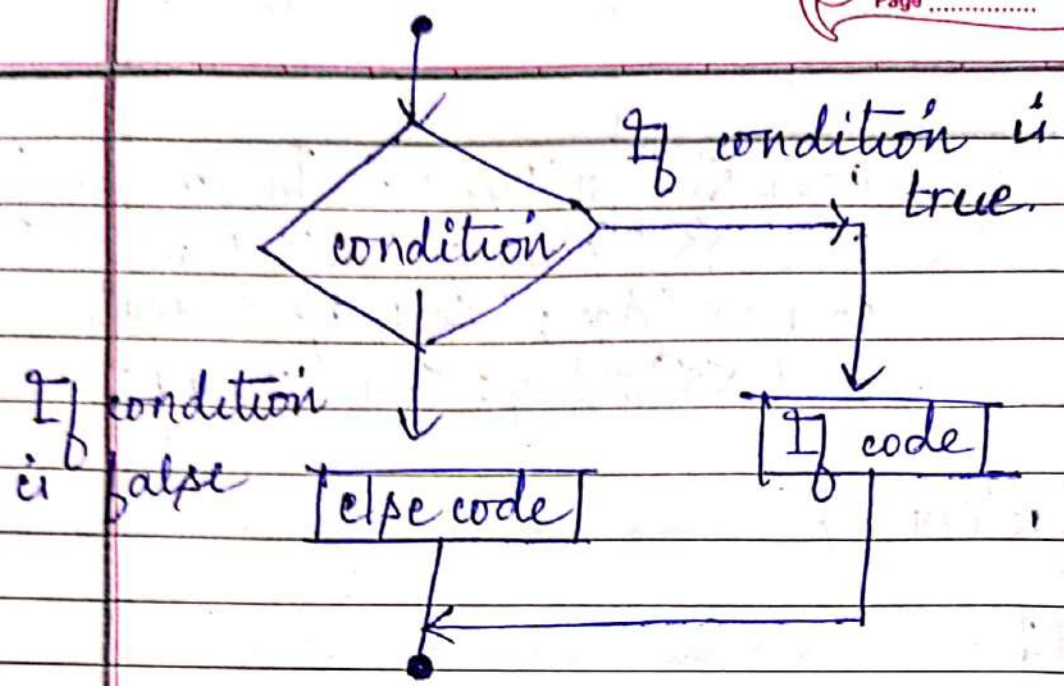 Page ..............
If condition is
true.
condition
If condition
is false
If code
else code